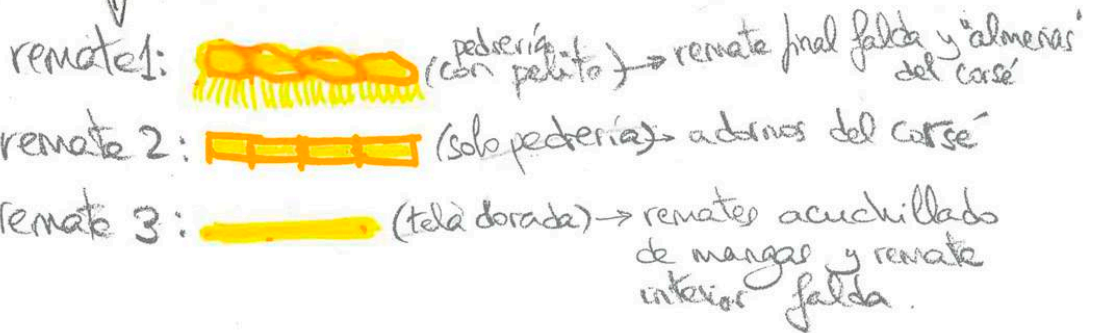 remate 1: (pedrería con pelito) → remate final falda y "almenas" del corsé
remate 2: (solo pedrería) → adornos del corsé
remate 3: (tela dorada) → remates acuchillado
de mangas y remate
interior falda.